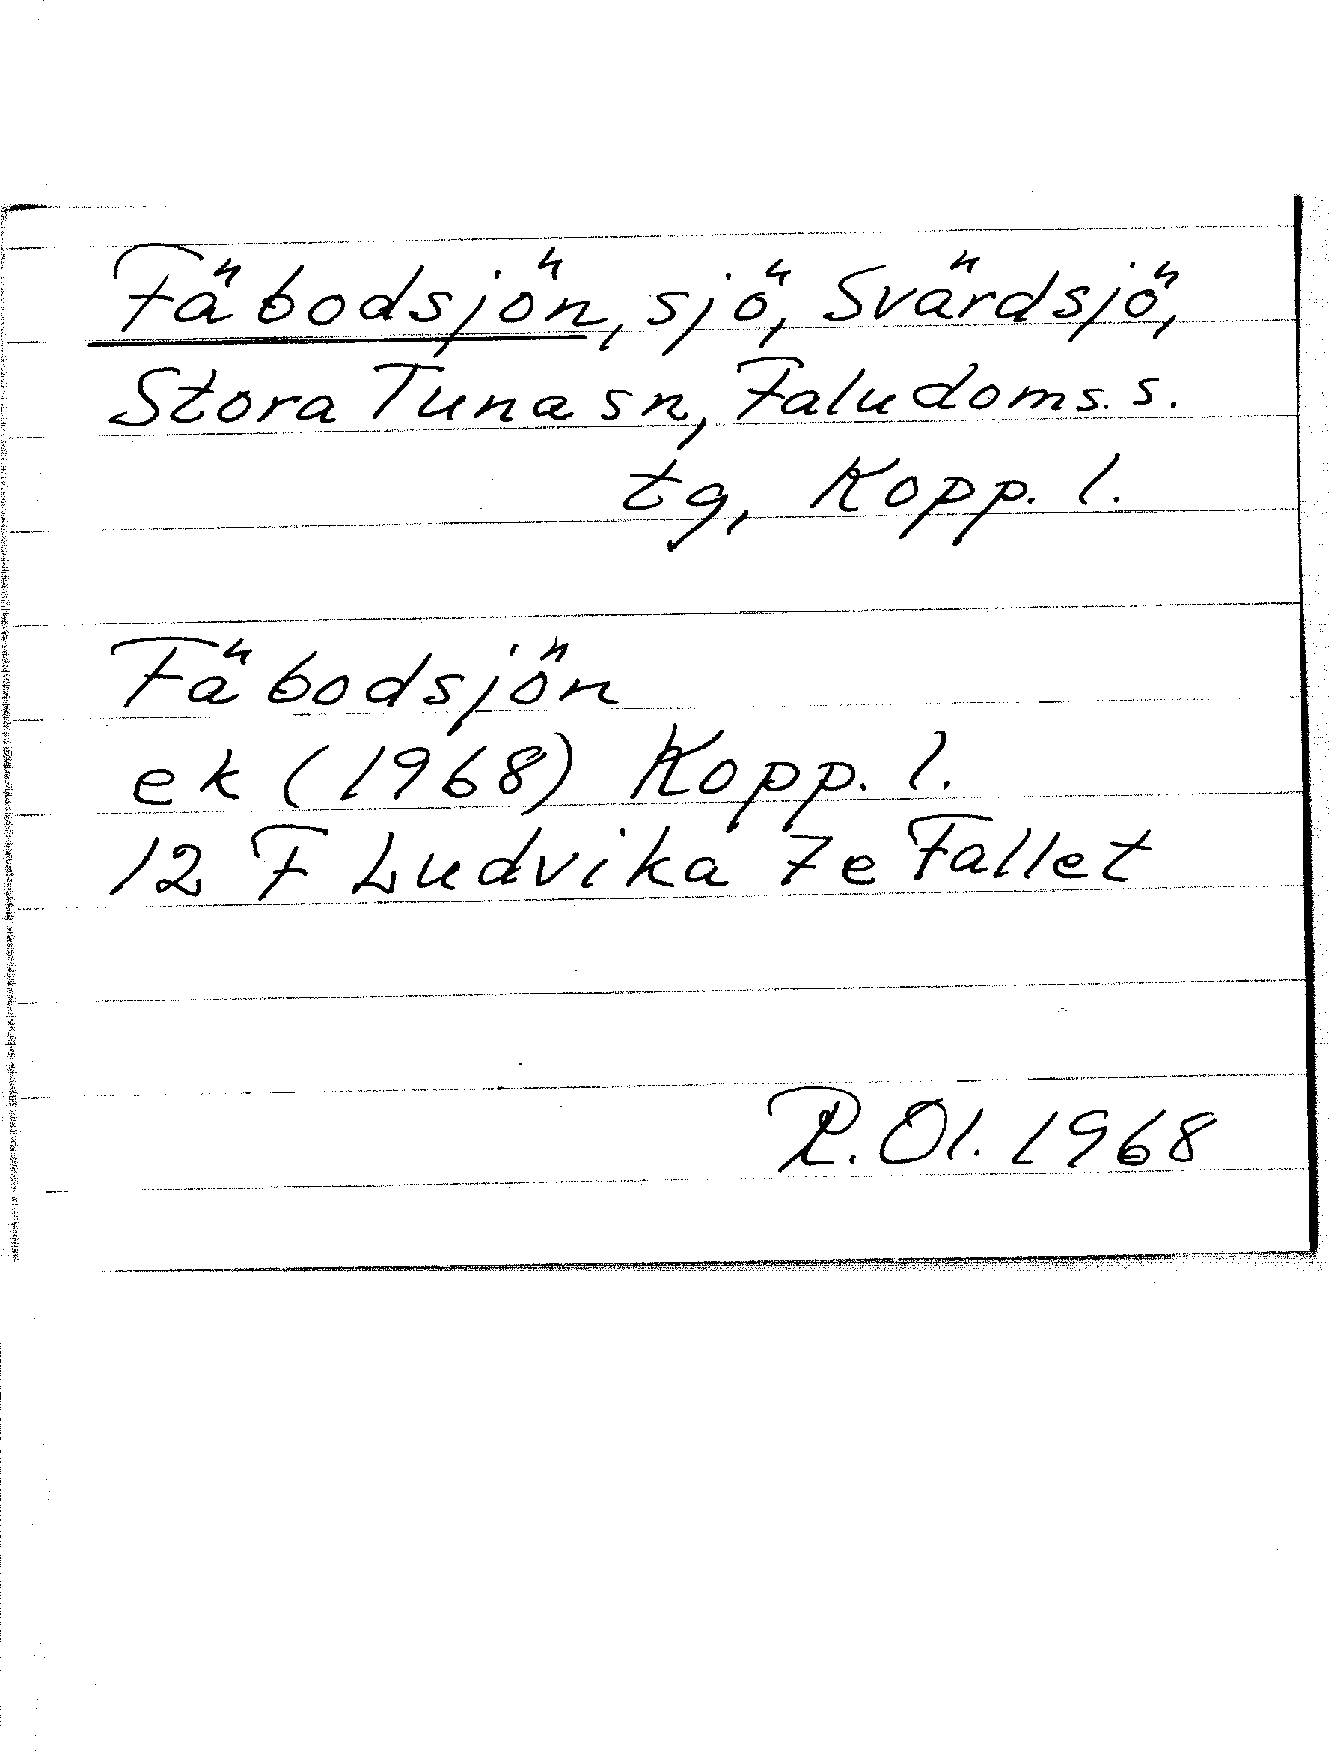 Fäbodsjön, sjö, Svärdsjö,
Stora Tuna sn, Falu doms. s.
tg, Kopp. l.
Fäbodsjön
ek (1968) Kopp. l.
12 F Ludvika 7e Fallet
R. Ol. 1968